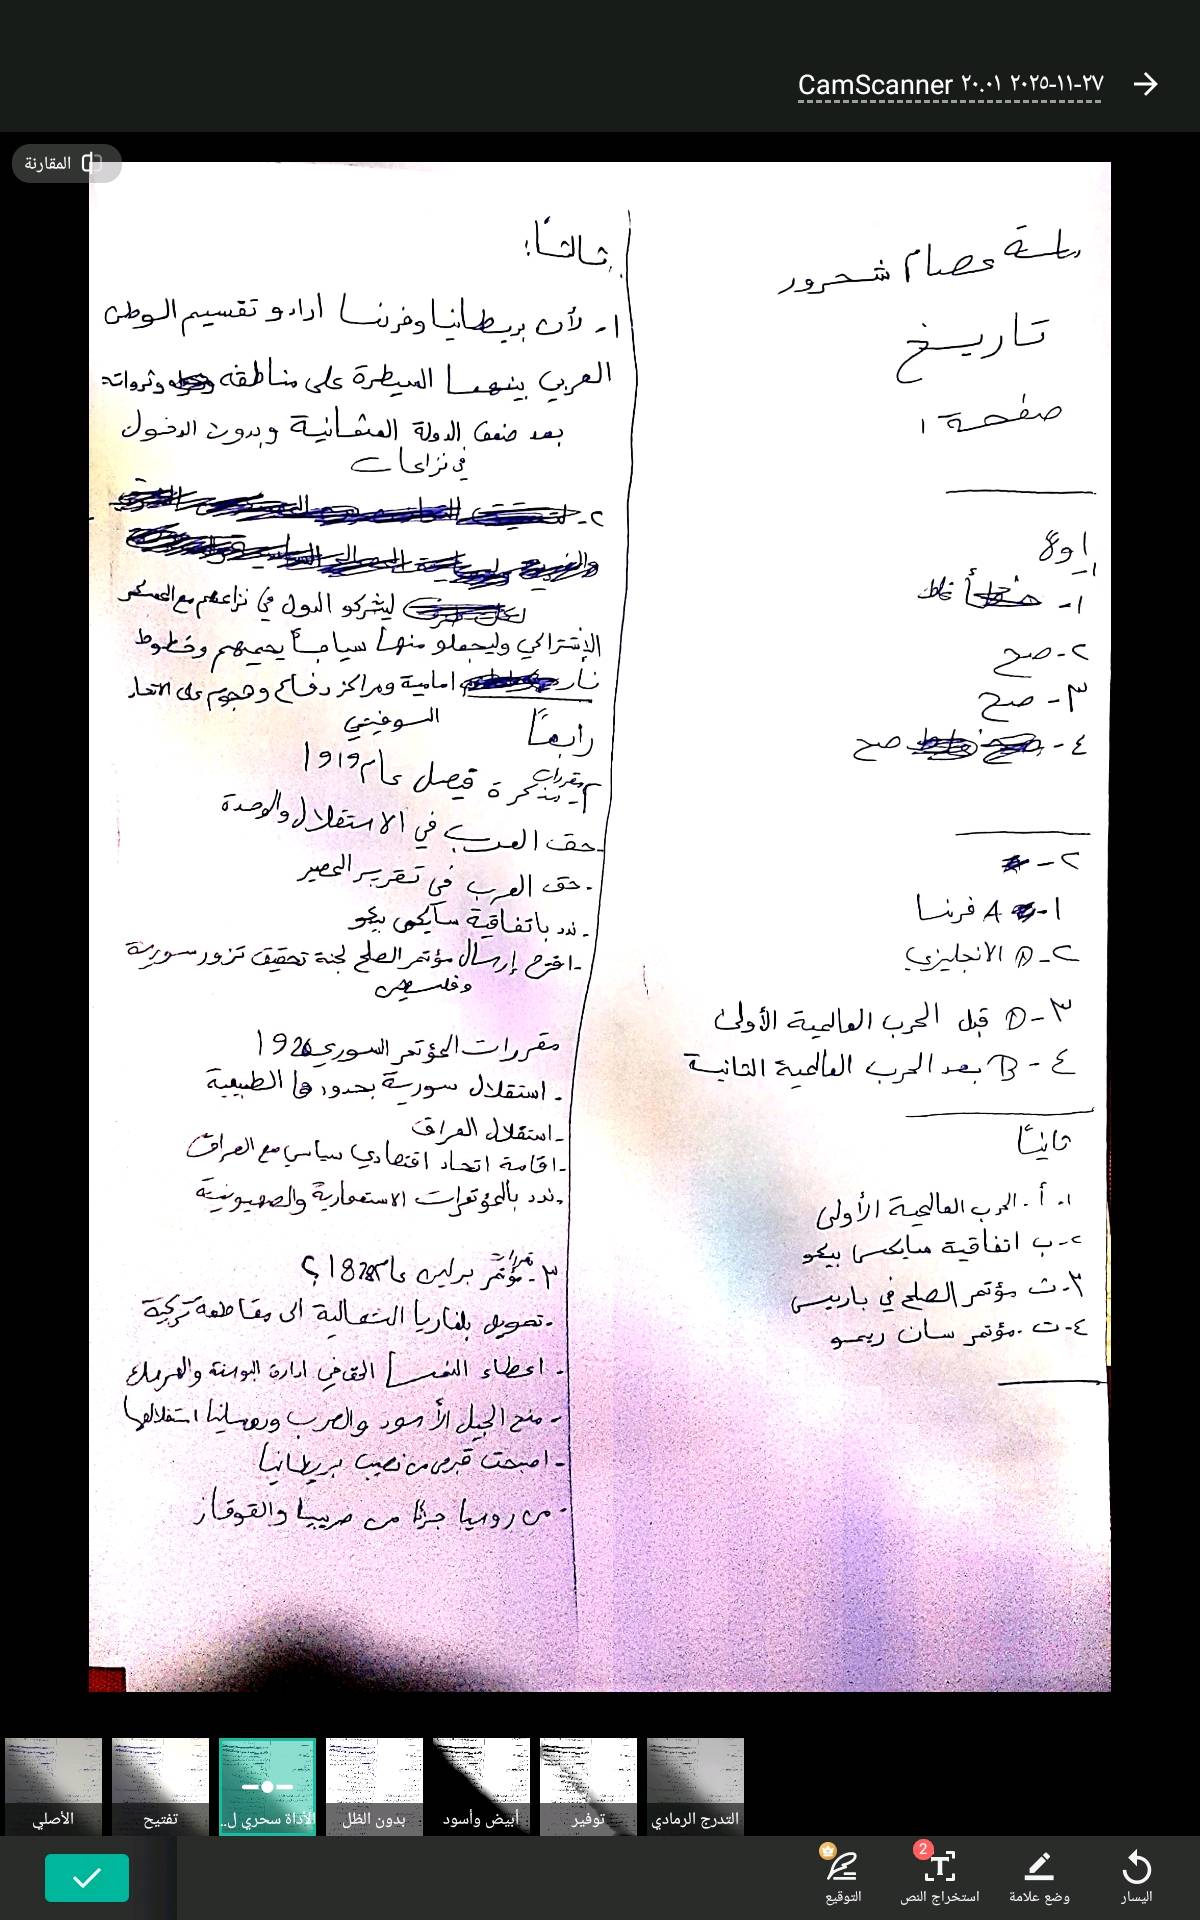 CamScanner ٢٠.٠١ ٢٠٢٥-١١-٢٧
المقارنة
باسمة عصام شحرور
تاريخ
صفحة ١
اولا
١- غلط
٢- صح
٣- صح
٤- صح
٢-
١- A فرنسا
٢- D الانجليزي
٣- D قبل الحرب العالمية الأولى
٤- B بعد الحرب العالمية الثانية
ثانياً
١- أ. الحرب العالمية الأولى
٢- ب اتفاقية سايكس بيكو
٣- ث مؤتمر الصلح في باريس
٤- ت. مؤتمر سان ريمو
ثالثاً:
١- لأن بريطانيا وفرنسا ارادو تقسيم الوطن
العربي بينهما السيطرة على مناطقه وثرواته
بعد ضعف الدولة العثمانية وبدون الدخول
في نزاعات
٢-
ليشركو الدول في نزاعهم مع المعسكر
الإشتراكي وليجعلو منها سياجاً يحميهم وخطوط
نار امامية ومراكز دفاع وهجوم على الاتحاد
السوفيتي
رابعاً
٢- مقررات مذكرة فيصل عام ١٩١٩
- حق العرب في الاستقلال والوحدة
- حق العرب في تقرير المصير
- ندد باتفاقية سايكس بيكو
- اقترح إرسال مؤتمر الصلح لجنة تحقيق تزور سورية
وفلسطين
مقررات المؤتمر السوري
- استقلال سورية بحدودها الطبيعية
- استقلال العراق
- اقامة اتحاد اقتصادي سياسي مع العراق
- ندد بالمؤتمرات الاستعمارية والصهيونية
٣- مقررات مؤتمر برلين عام ١٨٧٨؟
- تحويل بلغاريا الشمالية الى مقاطعة تركية
- اعطاء النمسا الحق في ادارة البوسنة والهرسك
- منح الجبل الأسود والصرب ورومانيا استقلالها
- اصبحت قبرص من نصيب بريطانيا
- روسيا جزءًا من والقوقاز
الأصلي
تفتيح
الأداة سحري ل..
بدون الظل
أبيض وأسود
توفير
التدرج الرمادي
التوقيع
2
استخراج النص
وضع علامة
اليسار